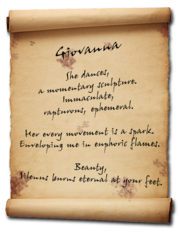 Giovanna
She dances,
a momentary sculpture.
Immaculate,
rapturous, ephemeral.
Her every movement is a spark.
Enveloping me in euphoric flames.
Beauty,
burns eternal at your feet.